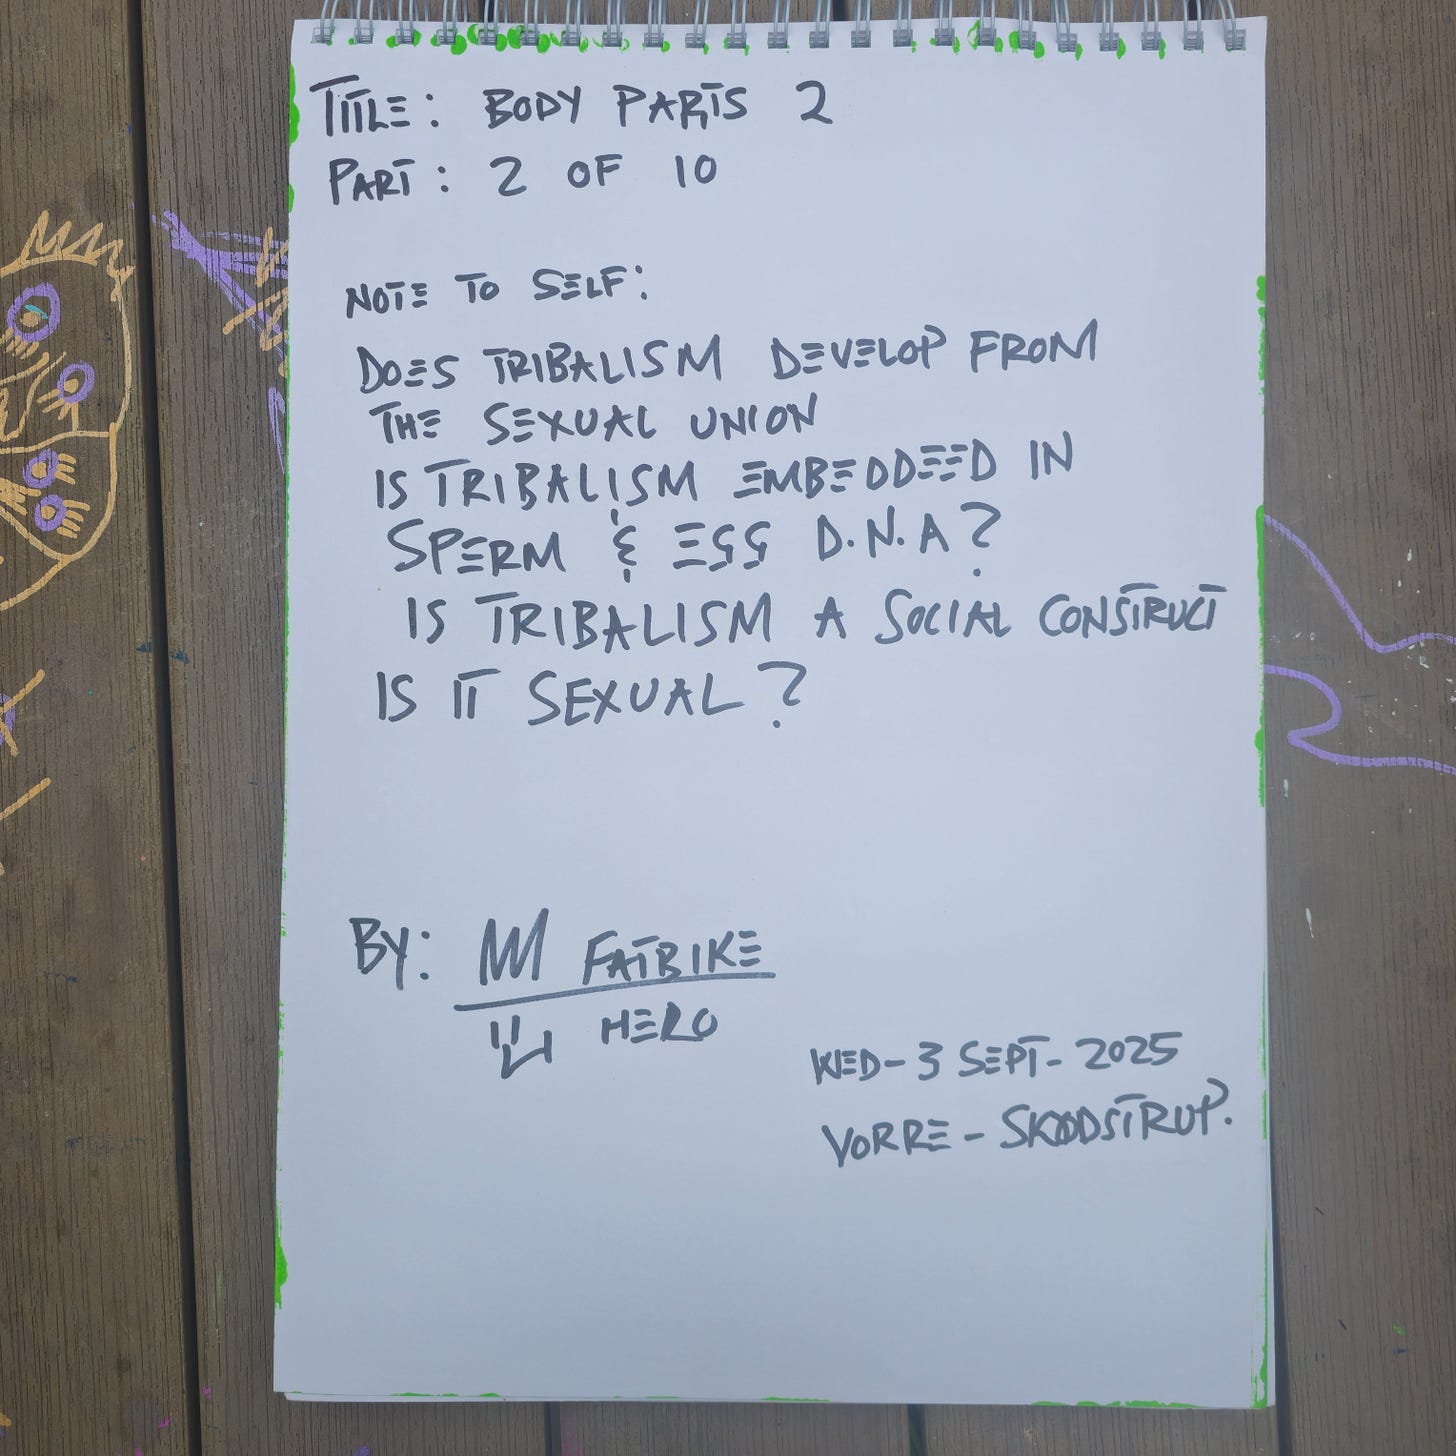 TITLE: BODY PARTS 2
PART: 2 OF 10
NOTE TO SELF:
DOES TRIBALISM DEVELOP FROM
THE SEXUAL UNION
IS TRIBALISM EMBEDDEED IN
SPERM & EGG D.N.A?
IS TRIBALISM A SOCIAL CONSTRUCT
IS IT SEXUAL?
BY: FATBIKE
HERO
WED-3 SEPT-2025
VORRE-SKØDSTRUP.